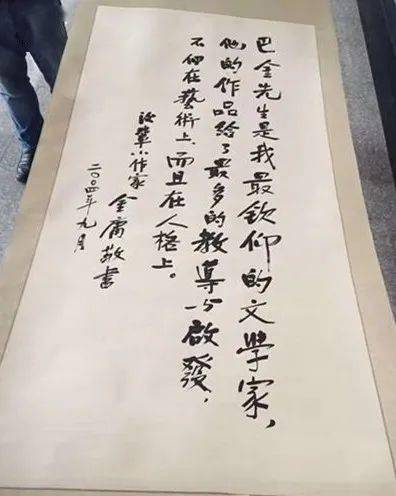 巴金先生是我最欽仰的文學家，
他的作品给了最多的教導与啟發，
不仰在藝術上、而且在人格上。
後輩小作家
金庸敬書
二〇〇四年九月